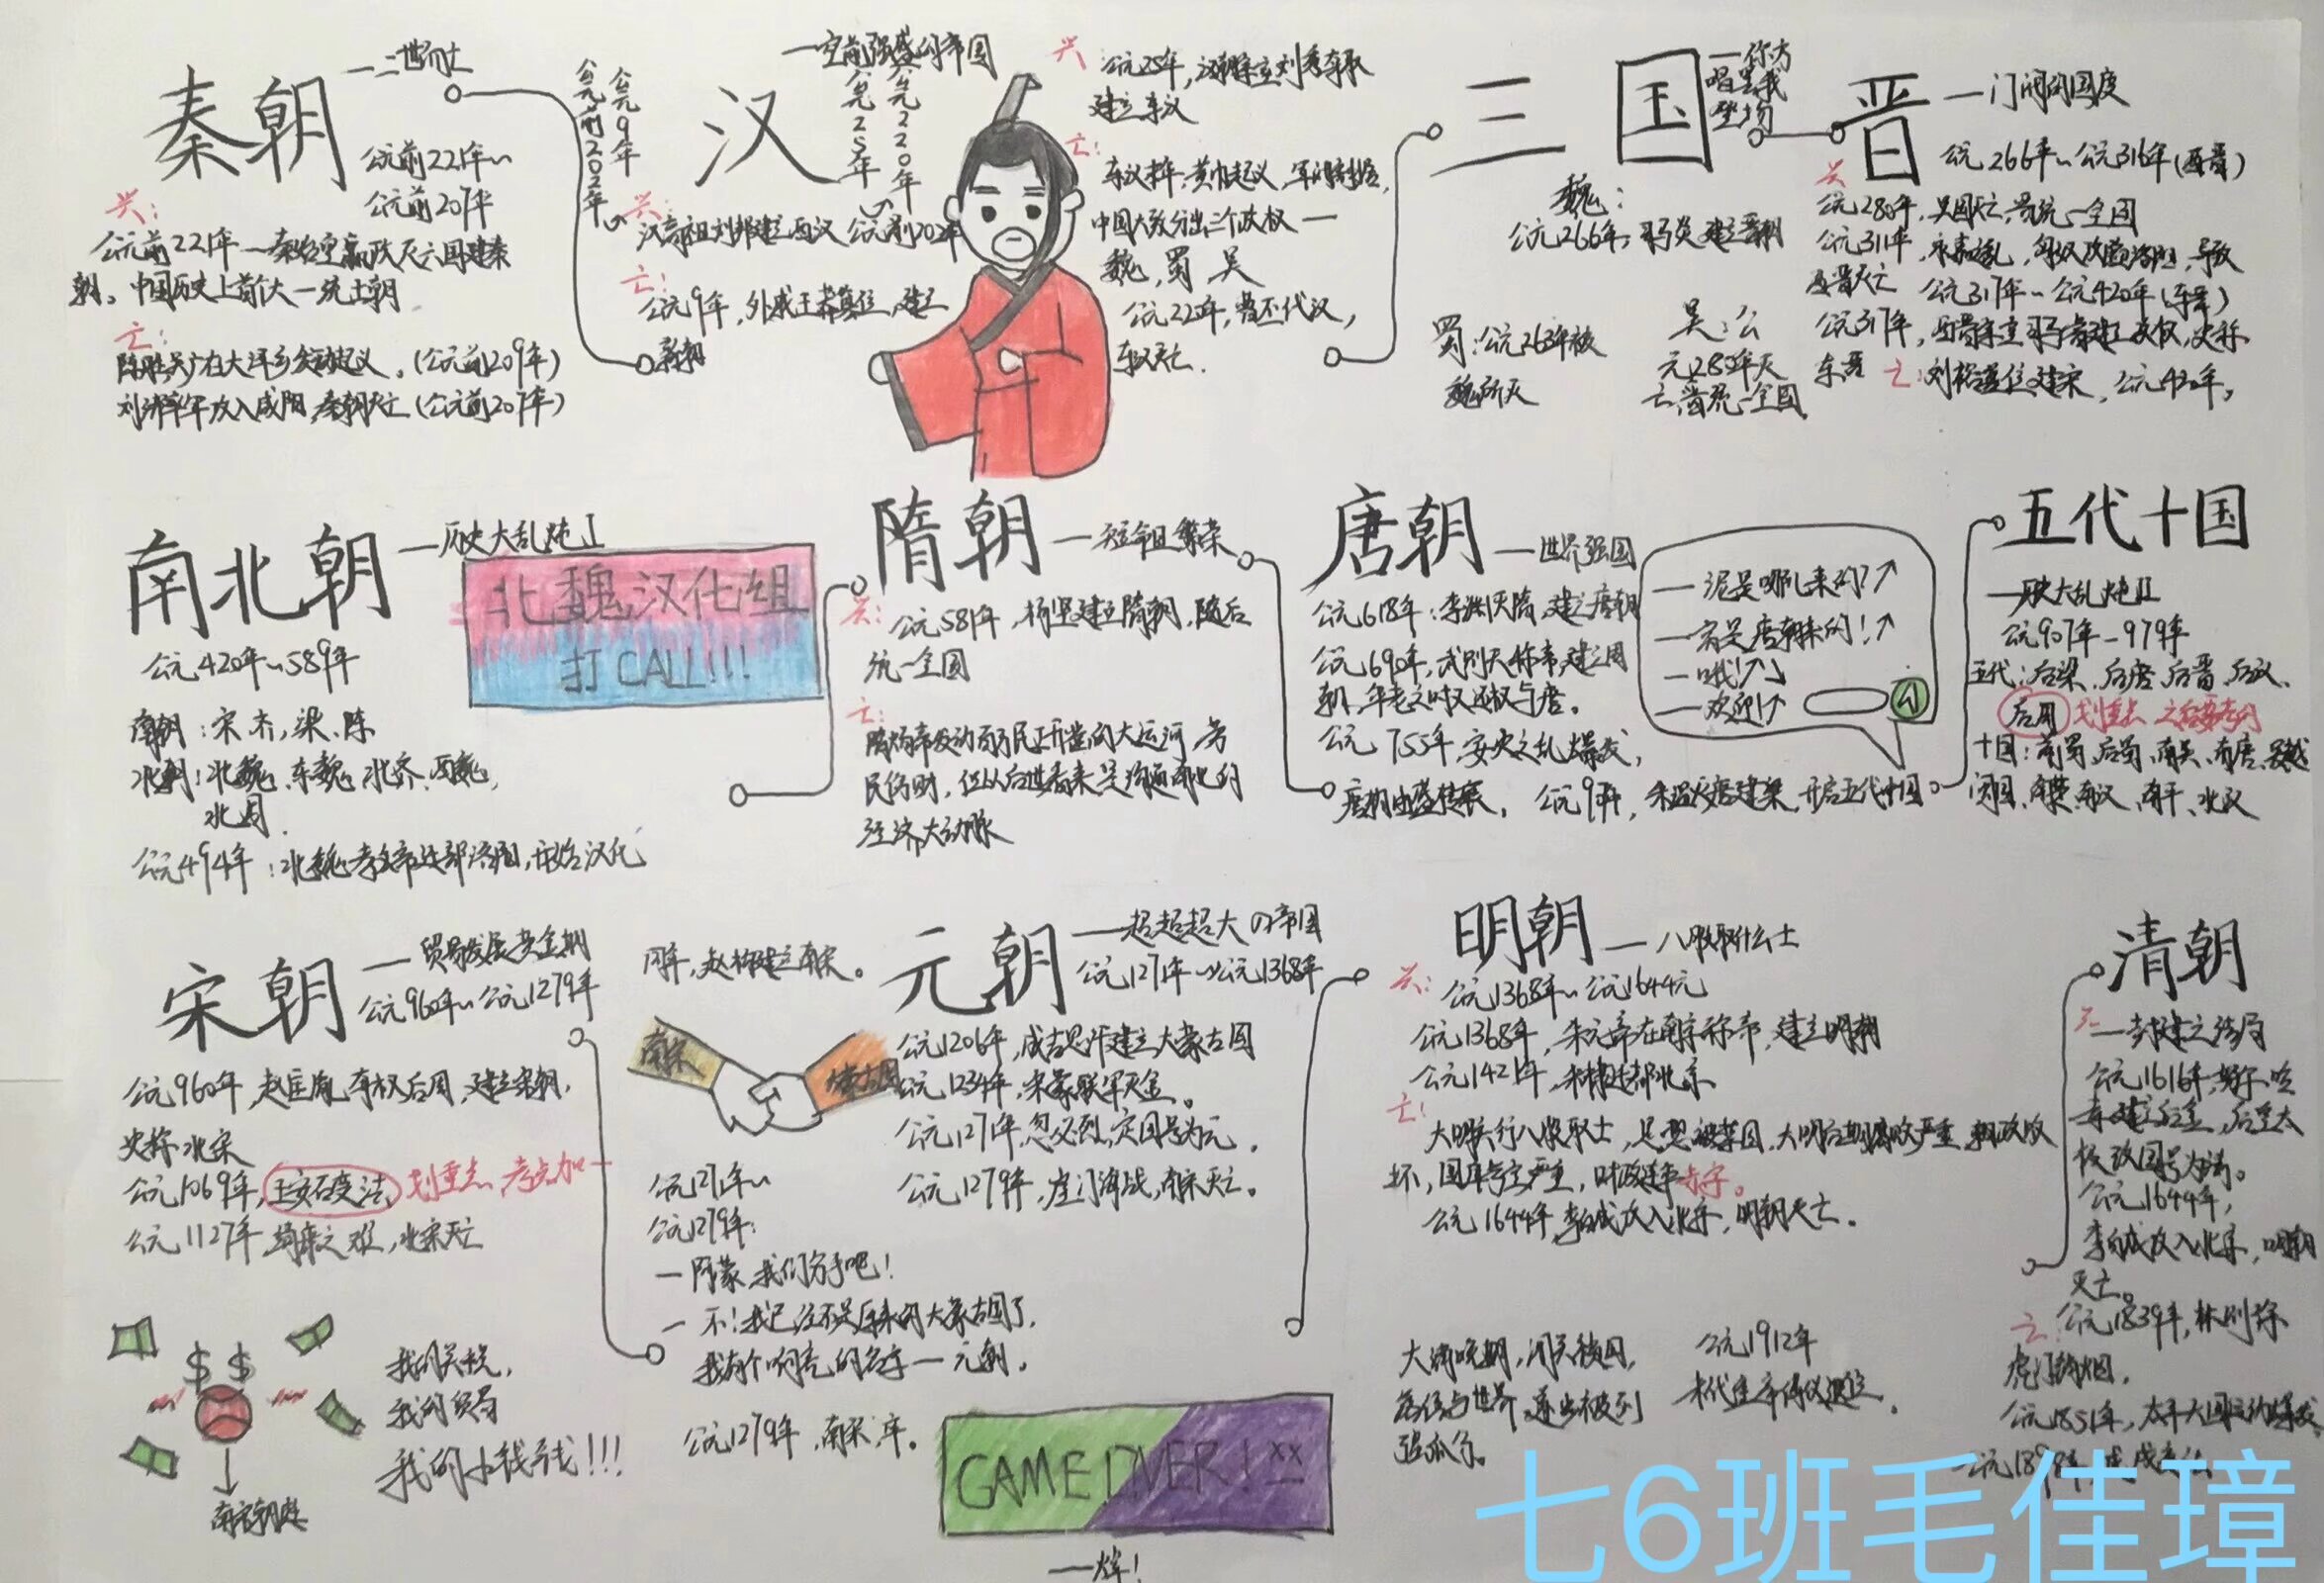 秦朝
一二世而亡
公元前221年~
公元前207年
兴:
公元前221年一秦始皇嬴政灭六国建秦
朝。中国历史上首个大一统王朝
亡:
陈胜吴广在大泽乡发动起义。(公元前209年)
刘邦率军攻入咸阳,秦朝灭亡(公元前207年)
公元前202年~
公元9年
汉
一空前强盛的帝国
公元25年~
公元220年
兴:
汉高祖刘邦建立西汉 公元前202年
亡:
公元9年,外戚王莽篡位,建立
新朝
兴
公元25年,汉朝宗室刘秀夺取
建立东汉
亡:
东汉末年,黄巾起义,军阀割据,
中国大致分出三个政权一
魏,蜀 吴
公元22年,曹丕代汉,
东汉灭亡.
三国
一你方
唱罢我
登场
魏:
公元266年,司马炎建立晋朝
蜀:公元263年被
魏所灭
吴:公
元280年灭
亡,晋统一全国
晋
一门阀的国度
公元266年~公元316年(西晋)
兴
公元280年,吴国灭亡,晋统一全国
公元311年,永嘉之乱,匈奴攻陷洛阳,导致
西晋灭亡 公元317年~公元420年(东晋)
公元317年,西晋宗室司马睿建立政权,史称
东晋 亡:刘裕篡位,建宋,公元420年。
南北朝
一历史大乱炖I
公元420年~589年
南朝:宋,齐,梁,陈
北朝:北魏、东魏、北齐、西魏,
北周.
公元494年:北魏孝文帝迁都洛阳,开始汉化
北魏汉化组
打CALL!!!
隋朝
一短命且繁荣
兴:公元581年,杨坚建立隋朝,随后
统一全国
亡:
隋炀帝发动百万民工开凿的大运河 劳
民伤财,但从后世看来是沟通南北的
经济大动脉
唐朝
一世界强国
公元618年:李渊灭隋,建立唐朝
公元690年,武则天称帝,建立周
朝,年老之时又还权与唐。
公元755年,安史之乱爆发,
唐朝由盛转衰。公元907年,朱温灭唐建梁,开启五代十国
一泥是哪儿来的?↗
一窝是唐朝来的!↗
一哦!↗↘
一欢迎!↗
五代十国
一历史大乱炖II
公元907年-979年
五代:后梁、后唐、后晋、后汉、
后周 划重点 之后要考的
十国:前蜀、后蜀、南吴、南唐、吴越
闽国、南楚、南汉、南平、北汉
宋朝
一贸易发展黄金期
公元960年~公元1279年
公元960年,赵匡胤夺权后周,建立宋朝,
史称北宋
公元1069年,王安石变法 划重点,考点加一
公元1127年 靖康之难,北宋灭亡
同年,赵构建立南宋。
我的关税,
我的贸易
我的小钱钱!!!
南宋朝廷
南宋
蒙古国
公元1271年~
公元1279年:
一阿蒙,我们分手吧!
一不!我已经不是原来的大蒙古国了,
我有个响亮的名字一元朝。
公元1279年,南宋,卒。
元朝
一超超超大の帝国
公元1271年~公元1368年
公元1206年,成吉思汗建立大蒙古国
公元1234年,宋蒙联军灭金。
公元1271年,忽必烈,定国号为元。
公元1279年,崖门海战,南宋灭亡。
GAME OVER! ××
一烽!
明朝
一八股取什么士
兴:公元1368年~公元1644元
公元1368年,朱元璋在南京称帝,建立明朝
公元1421年,朱棣迁都北京
亡:
大明实行八股取士,思想被禁固,大明后期腐败严重,朝政败
坏,国库亏空严重,财政连年赤字。
公元1644年,李自成攻入北京,明朝灭亡。
清朝
兴一封建之终局
公元1616年,努尔哈
赤建立后金,后皇太
极改国号为清。
公元1644年,
李自成攻入北京,明朝
灭亡。
亡:公元1839年,林则徐
虎门销烟。
公元1851年,太平天国运动爆发
公元1898年,戊戌变法
大清晚期,闭关锁国,
落伍与世界,逐步被列
强瓜分。
公元1912年
末代皇帝傅仪退位。
七6班毛佳璋